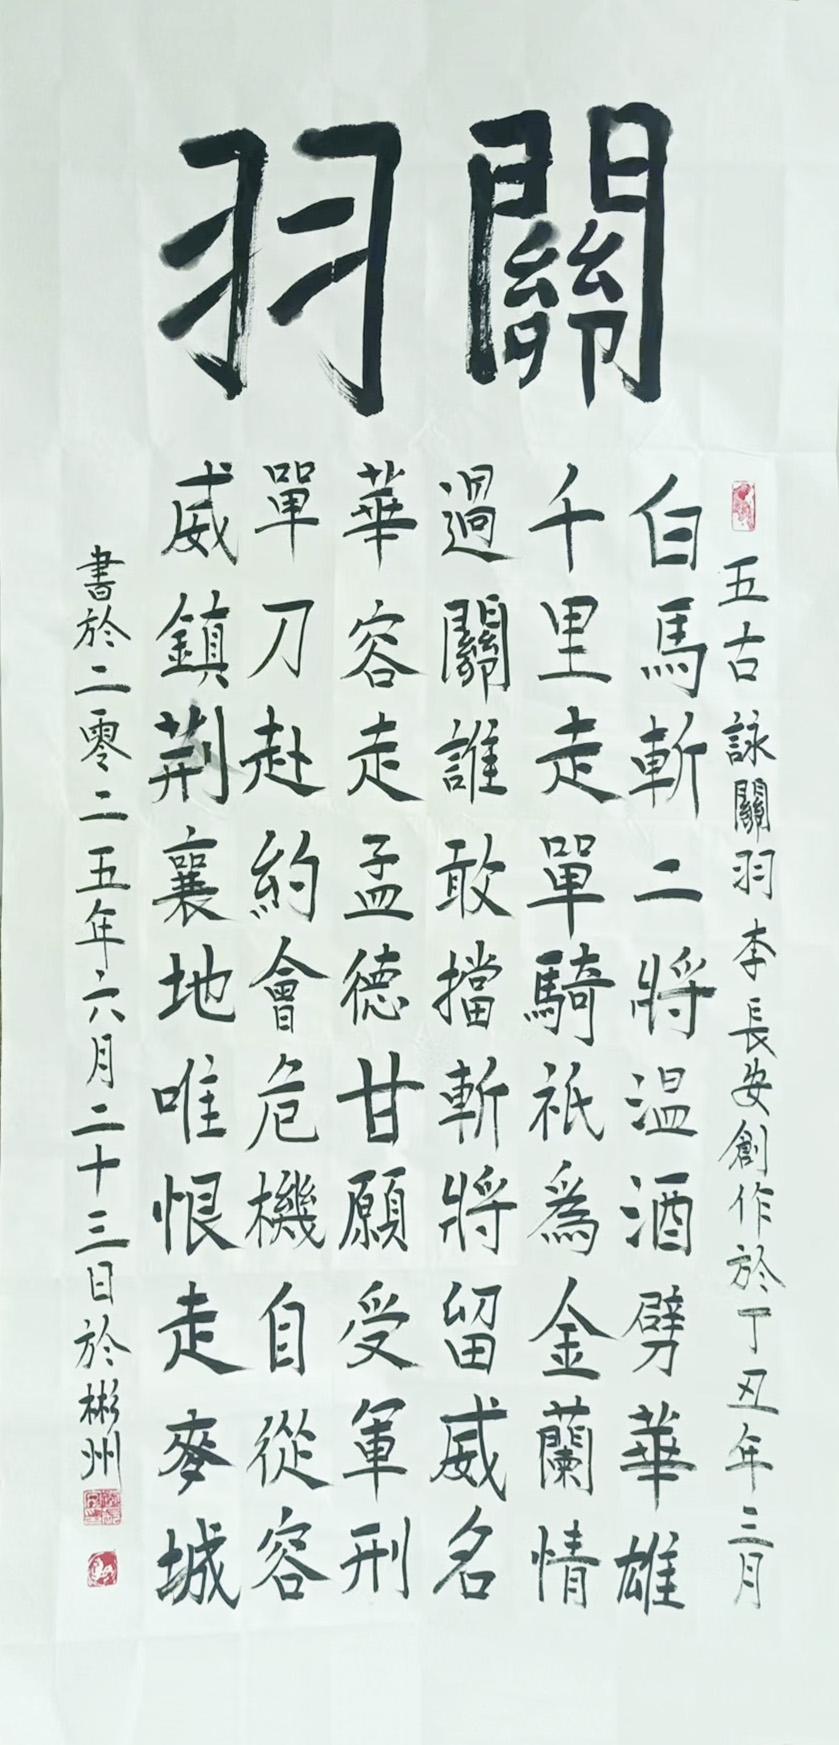 關羽
五古詠關羽李長安創作於丁丑年三月
白馬斬二將温酒劈華雄
千里走單騎祇為金蘭情
過關誰敢擋斬將留威名
華容走孟德甘願受軍刑
單刀赴約會危機自從容
威鎮荆襄地唯恨走麥城
書於二零二五年六月二十三日於彬州